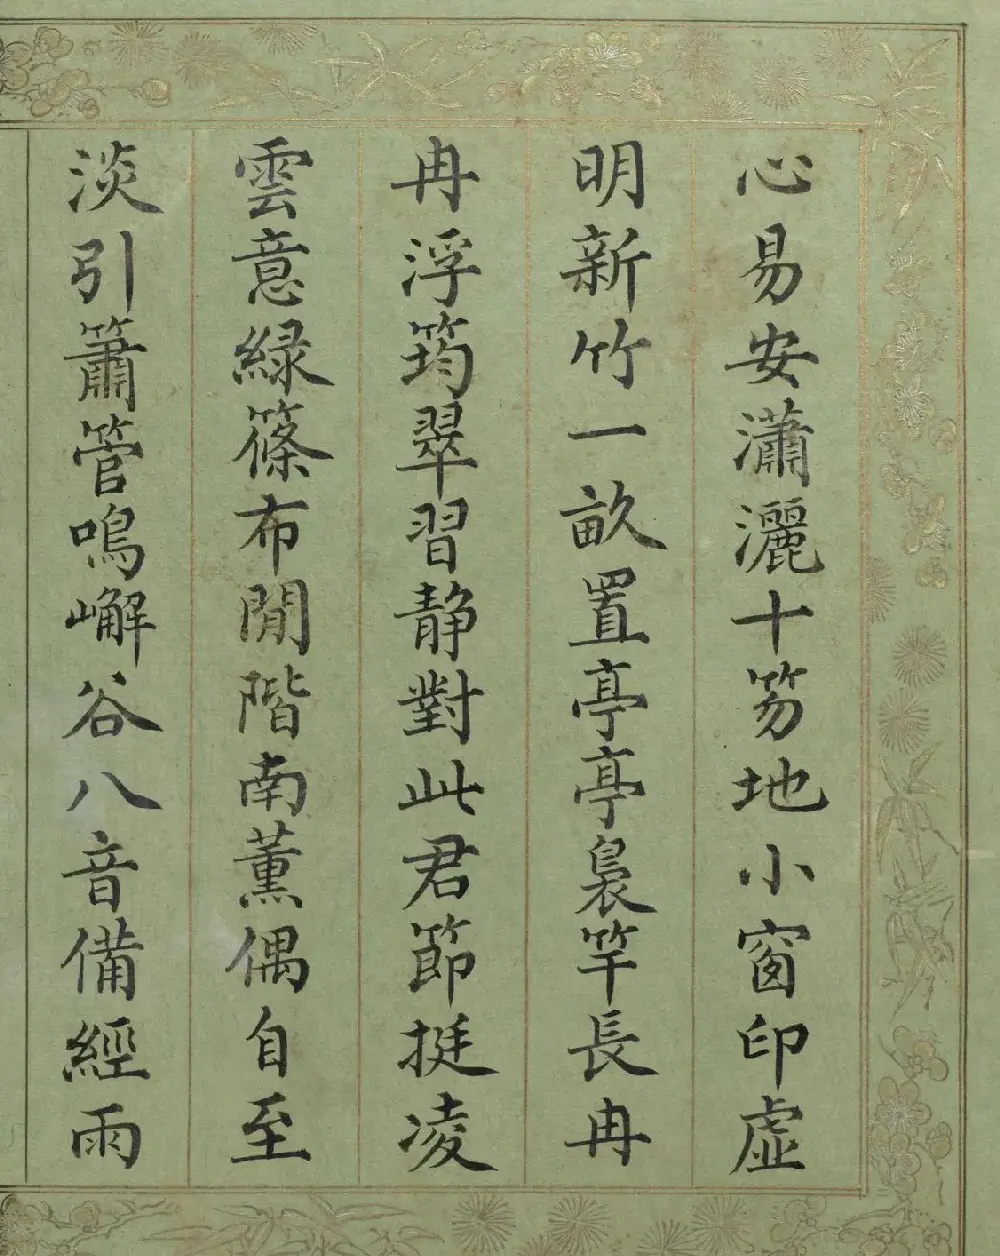 心易安瀟灑十笏地小窗印虛
明新竹一畝置亭亭裊竿長冉
冉浮筠翠習静對此君節挺凌
雲意緑篠布閒階南薰偶自至
淡引簫管鳴嶰谷八音備經雨